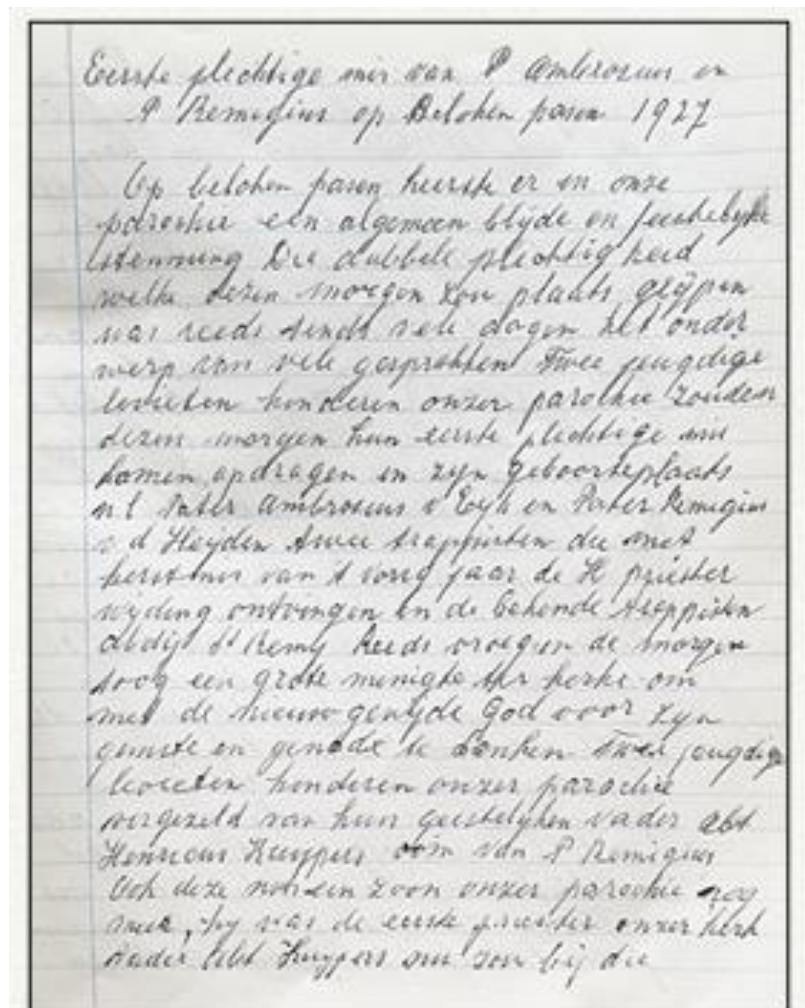 Eerste plechtige mis van P Ambrosius en
P Remigius op Beloken pasen 1927
Op beloken pasen heerste er in onze
parochie een algemeen blijde en feestelijke
stemming Die dubbele plechtigheid
welke dezen morgen zou plaats grijpen
was reeds sinds vele dagen het onder
werp van vele gesprekken Twee jeugdige
levieten kinderen onzer parochie zouden
dezen morgen hun eerste plechtige mis
komen opdragen in zijn geboorteplaats
nl Pater Ambrosius v Eijk en Pater Remigius
v d Heijden twee trappisten die met
kerstmis van 't vorig jaar de H priester
wijding ontvingen in de bekende trappisten
abdij St Remy Reeds vroeg in de morgen
toog een grote menigte ter kerke om
met de nieuw gewijde God voor zijn
gunste en genade te danken Twee jeugdige
levieten kinderen onzer parochie
vergezeld van hun geestelijken vader abt
Henricus Kuypers oom van P Remigius
Ook deze was een zoon onzer parochie
hij was de eerste priester onzer kerk
vader Abt Kuypers bij die